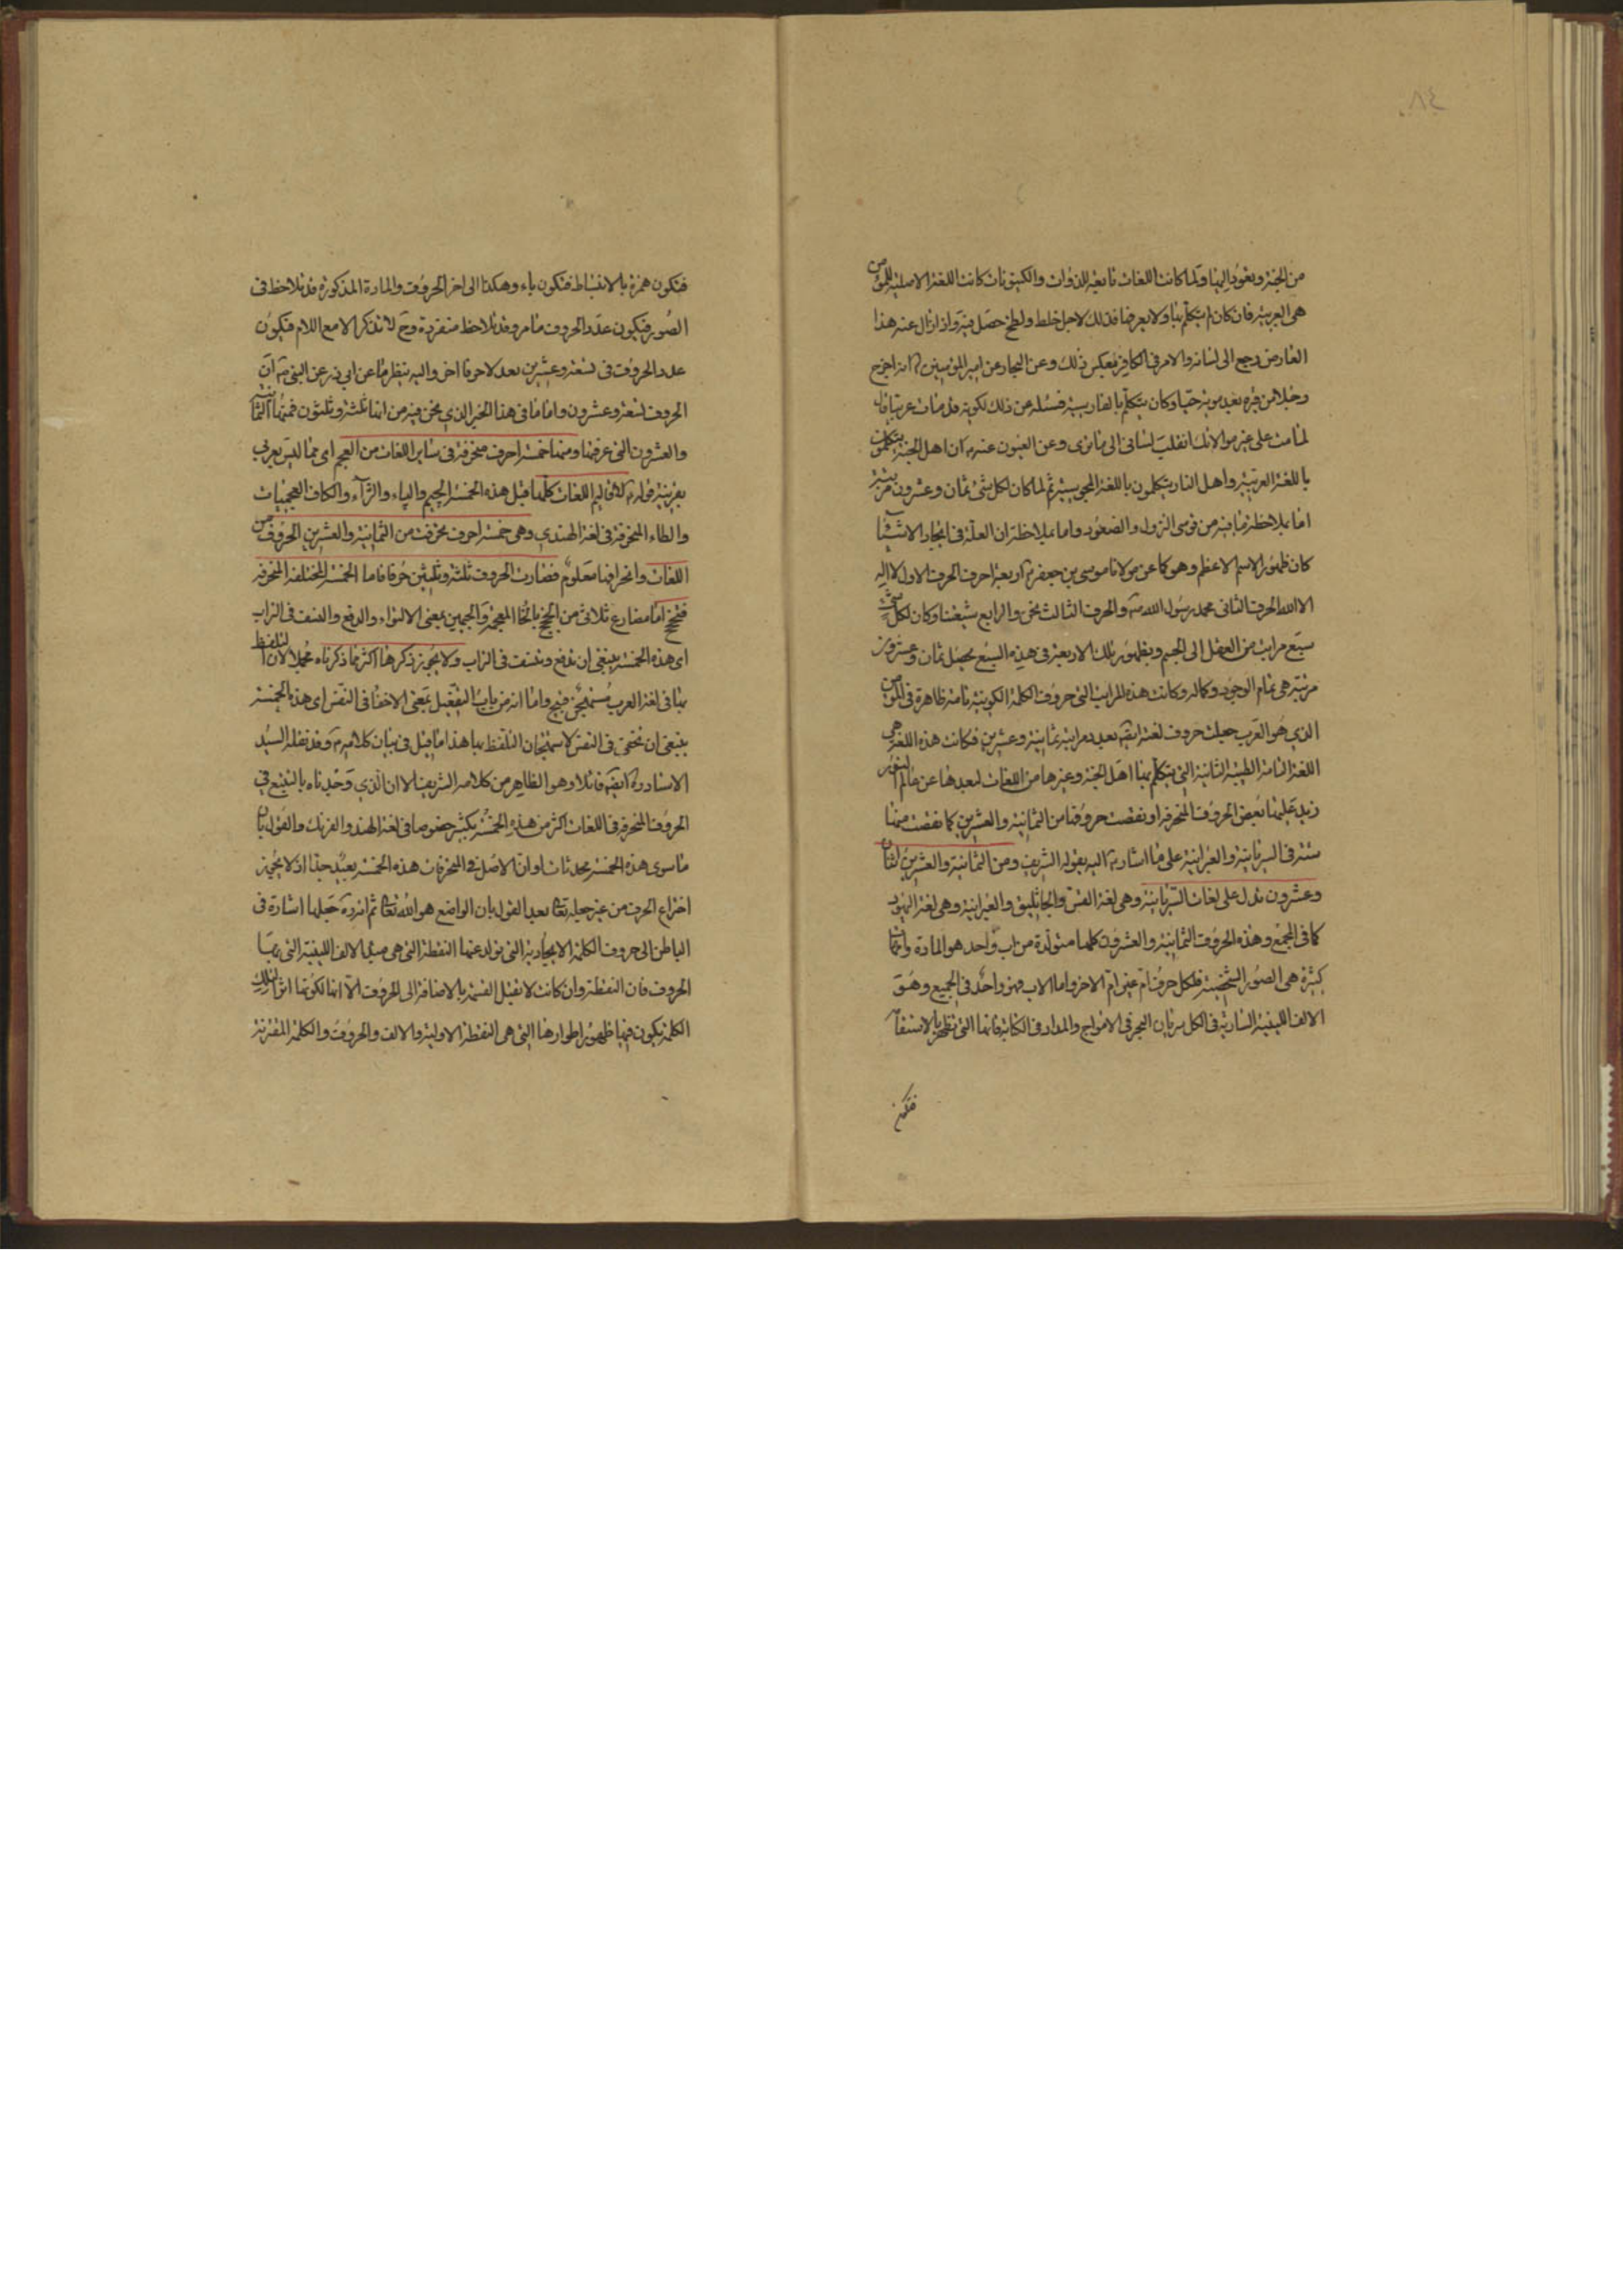 ٨٤
من الجنة ويعود اليها ولما كانت اللغات تابعة للذوات والكينونات كانت اللغة الاصلية للمؤمن
هى العربية فان كان لم يتكلم بها ولا يعرضها فذلك لاجل خلط ولطخ حصل فيه واذا زال عنه هذا
العارض رجع الى لسانه والامر فى الكافر بعكس ذلك وعن البحار عن امير المؤمنين انه اخرج
رجلا من قبره بعد موته حيا وكان يتكلم بالفارسية فسئله عن ذلك لكونه قد مات عربيا قال
لما مت على غير موالاتك انقلب لسانى الى ما ترى وعن العيون عنه ان اهل الجنة يتكلمون
باللغة العربية واهل النار يتكلمون باللغة المجوسية ثم لما كان لكل شئ ثمان وعشرون مرتبة
اما بملاحظة ما فيه من قوسى النزول والصعود واما بملاحظة ان العلة فى ايجاد الاشياء
كان ظهور الاسم الاعظم وهو كما عن مولانا موسى بن جعفر اربعة احرف الحرف الاول لا اله
الا الله الحرف الثانى محمد رسول الله والحرف الثالث نحن والرابع شيعتنا وكان لكل شئ
سبع مراتب من العقل الى الجسم وبظهور تلك الاربعة فى هذه السبع يحصل ثمان وعشرون
مرتبة هى تمام الوجود وكماله وكانت هذه المراتب التى حروف الكلمة الكونية تامة ظاهرة فى المؤمن
الذى هو العرب جعلت حروف لغته ايضا بعدد مراتبه ثمانية وعشرين فكانت هذه اللغة هى
اللغة التامة الطيبة التى يتكلم بها اهل الجنة وغيرها من اللغات لبعدها عن عالم النور
زيد عليها بعض الحروف المنحرفة او نقصت حروفها من الثمانية والعشرين كما نقصت منها
ستة فى السريانية والعبرانية على ما اشار اليه بقوله الشريف ومن الثمانية والعشرين اثنان
وعشرون تدل على لغات السريانية وهى لغة القس والجاثليق والعبرانية وهى لغة اليهود
كما فى المجمع وهذه الحروف الثمانية والعشرون كلها متولدة من اب واحد هو المادة وامهات
كثيرة هى الصور الشخصية فلكل حرف ام غير ام الاخر واما الاب فهو واحد فى الجميع وهو
الالف اللينية السارية فى الكل سريان البحر فى الامواج والمداد فى الكتابة فانها التى تظهر بالاستقا
فتكون
فتكون همزة بالانبساط فتكون باء وهكذا الى اخر الحروف والمادة المذكورة قد تلاحظ فى
الصور فيكون عدد الحروف ما مر وقد تلاحظ منفردة وح لا تذكر الا مع اللام فيكون
عدد الحروف فى تسعة وعشرين بعد لا حرفا اخر واليه ينظر ما عن ابى ذر عن النبى ان
الحروف تسعة وعشرون واما ما فى هذا الخبر الذى نحن فيه من انها ثلثة وثلثون فمنها الثمانية
والعشرون التى عرفتها ومنها خمسة احرف منحرفة فى ساير اللغات من العجم اى مما ليس بعربى
بقرينة قوله لاقاليم اللغات كلها قيل هذه الخمسة الجيم والپاء والژاء والكاف العجميات
والطاء المنحرفة فى لغة الهندى وهى خمسة احرف تحرفت من الثمانية والعشرين الحروف من
اللغات وانحرافها معلوم فصارت الحروف ثلثة وثلثين حرفا فاما الخمسة المختلفة المنحرفة
اما مضارع ثلاثى من بالخاء المعجمة والجيمين بمعنى الالتواء والدفع والنسف فى التراب
اى هذه الخمسة ينبغى ان تدفع وتنسف فى التراب ولا يجوز ذكرها اكثر مما ذكرناه مجملا لان التلفظ
بها فى لغة العرب مستهجن قبيح واما انه من باب التفعيل بمعنى الاخفاء فى النفس اى هذه الخمسة
ينبغى ان تخفى فى النفس لاستهجان التلفظ بها هذا ما قيل فى بيان كلامه وقد نقله السيد
الاستاد ايضا قائلا وهو الظاهر من كلامه الشريف الا ان الذى وجدناه بالتتبع فى
الحروف المنحرفة فى اللغات اكثر من هذه الخمسة بكثير خصوصا فى لغة الهند والفرنك والقول بان
ما سوى هذه الخمسة محدثات او ان الاصل فى المنحرفات هذه الخمسة بعيد جدا اذ لا يجوز
اختراع الحرف من غير جعله تعالى بعد القول بان الواضع هو الله تعالى ثم انه جعلها اشارة فى
الباطن الى حروف الكلمة الايجادية التى تولد عنها النقطة التى هى مبدا الالف اللينية التى بها
الحروف فان النقطة وان كانت لا تقبل القسمة بالاضافة الى الحروف الا انها لكونها اثرا لتلك
الكلمة يكون فيها ظهور اطوارها التى هى النقطة الاولية والالف والحروف والكلمة المقترنة